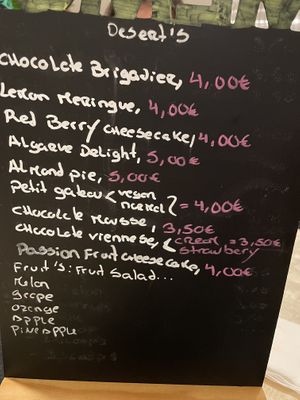 Desert's
Chocolate Brigadier, 4,00€
Lemon Meringue, 4,00€
Red Berry cheesecake, 4,00€
Algarve Delight, 5,00€
Almond pie, 5,00€
Petit gateau < vegan
normal } = 4,00€
chocolate Mousse, 3,50€
chocolate viennese, < cream = 3,50€
strawbery
Passion Fruit cheesecake, 4,00€
Fruit's: Fruit Salad...
Melon
Grape
orange
apple
Pineapple